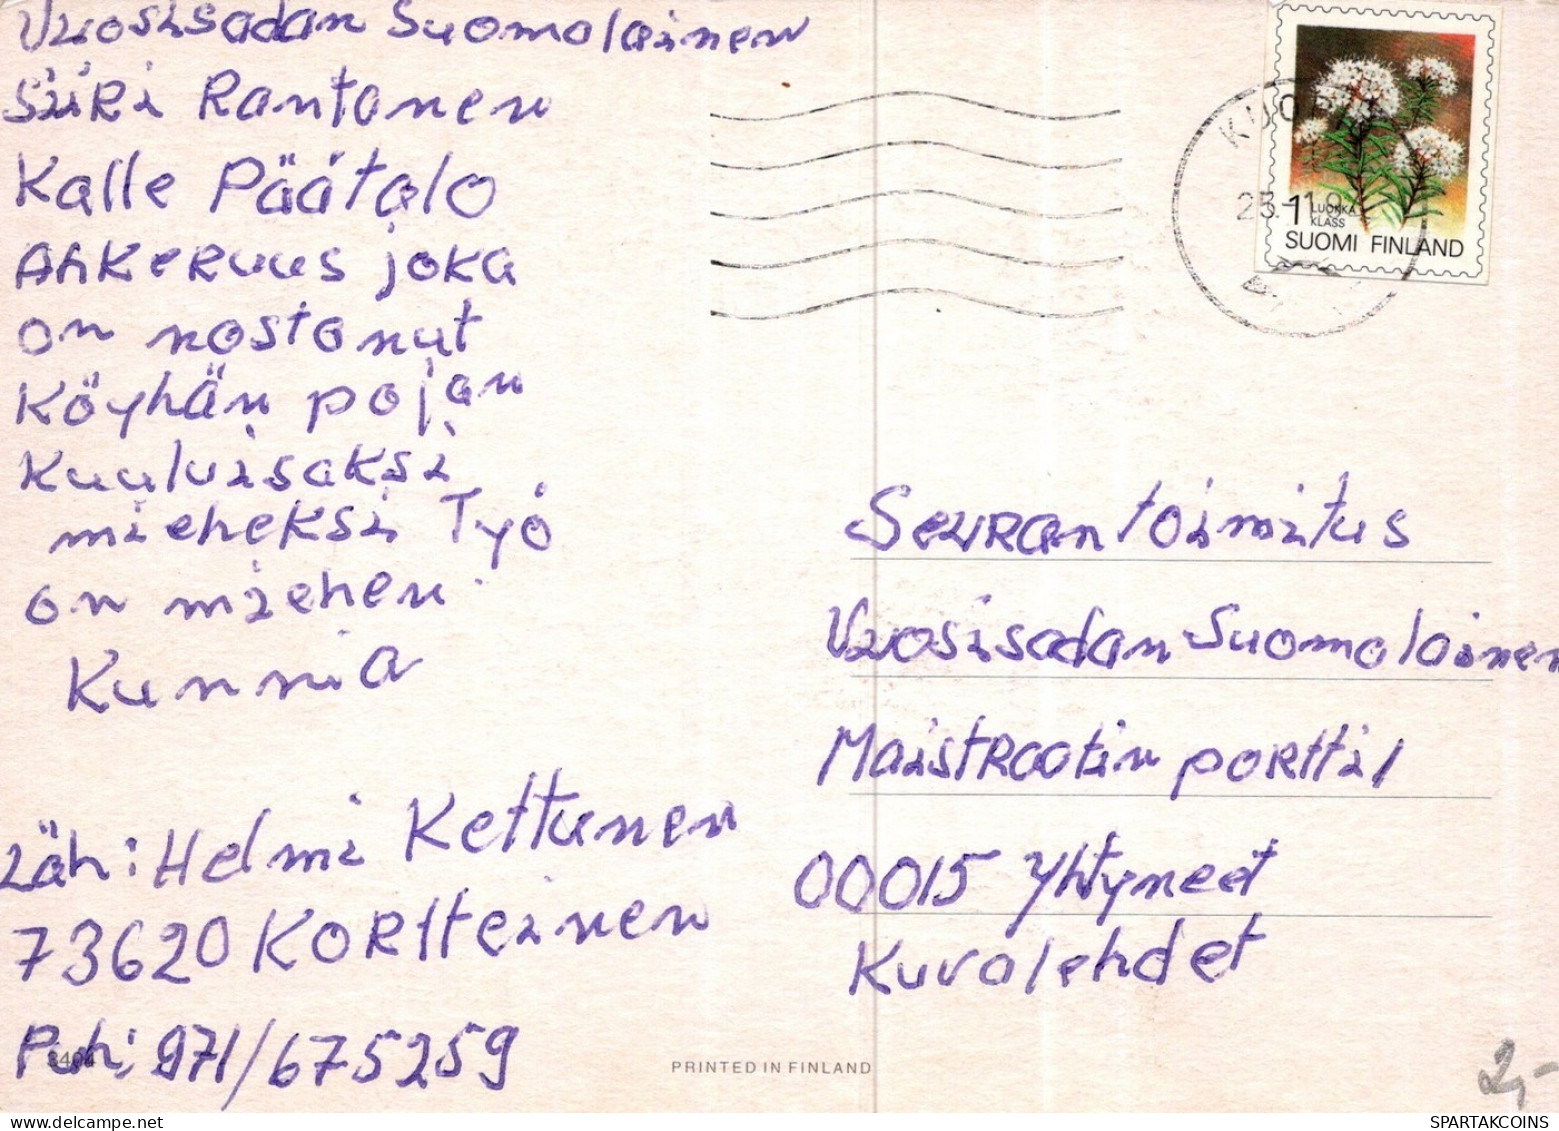 Vuosisadan Suomolainen
Siiri Rantanen
Kalle Päätalo
Ahkeruus joka
on nostanut
Köyhän pojan
Kuuluisaksi
mieheksi Työ
on miehen
Kunnia
Läh: Helmi Kettunen
73620 Kortteinen
Puh: 971/675259
1 LUOKKA
KLASS
SUOMI FINLAND
Seuran toimitus
Vuosisadan Suomolainen
Maistraatin portti 1
00015 Yhtyneet
Kuvalehdet
PRINTED IN FINLAND
2,-
SPARTAKCOINS